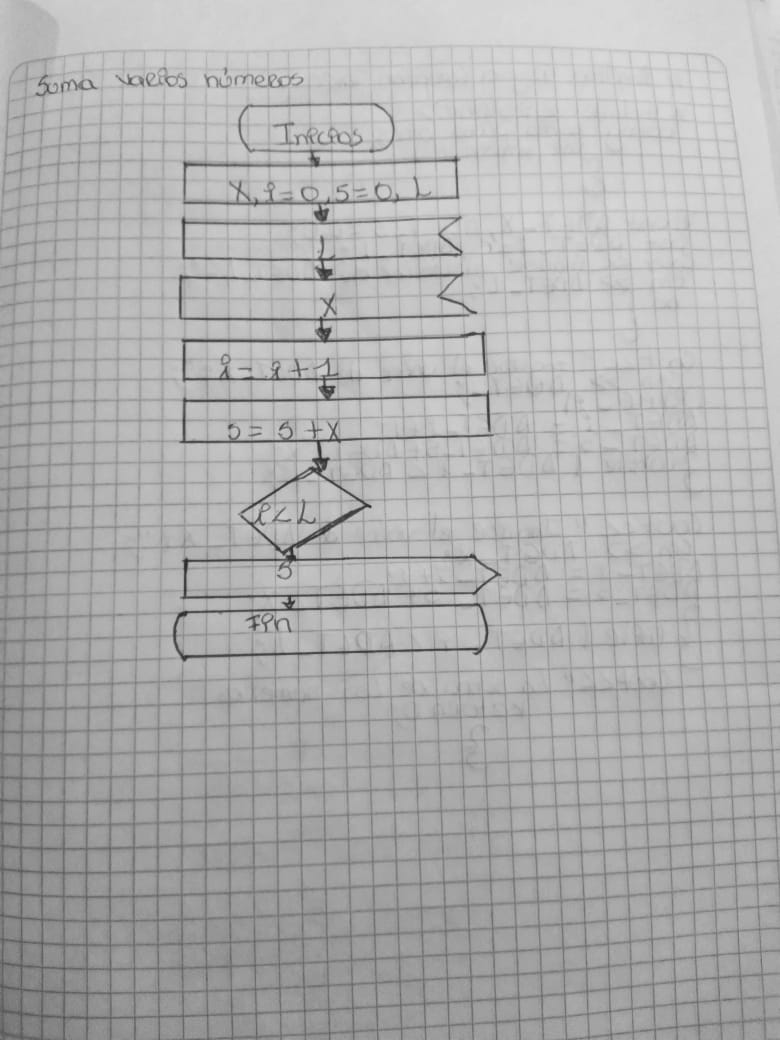 Suma varios números
Inicios
X, i=0, S=0, L
L
X
i = i + 1
S = S + X
i < L
S
Fin